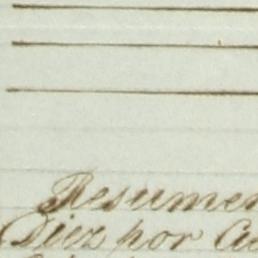 Resumen
Diez por